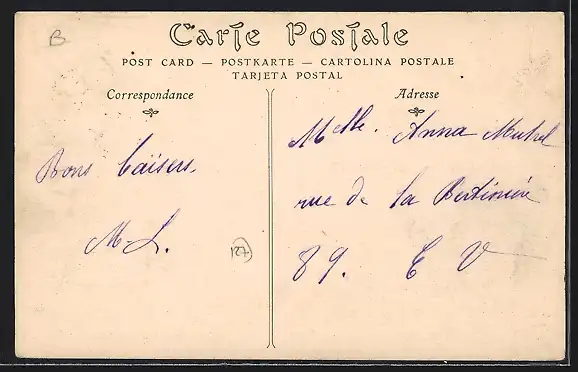 B
Carte Postale
POST CARD — POSTKARTE — CARTOLINA POSTALE
TARJETA POSTAL
Correspondance
Adresse
Mlle. Anna
Bons baisers.
rue de la
M. L.
127
89. E V